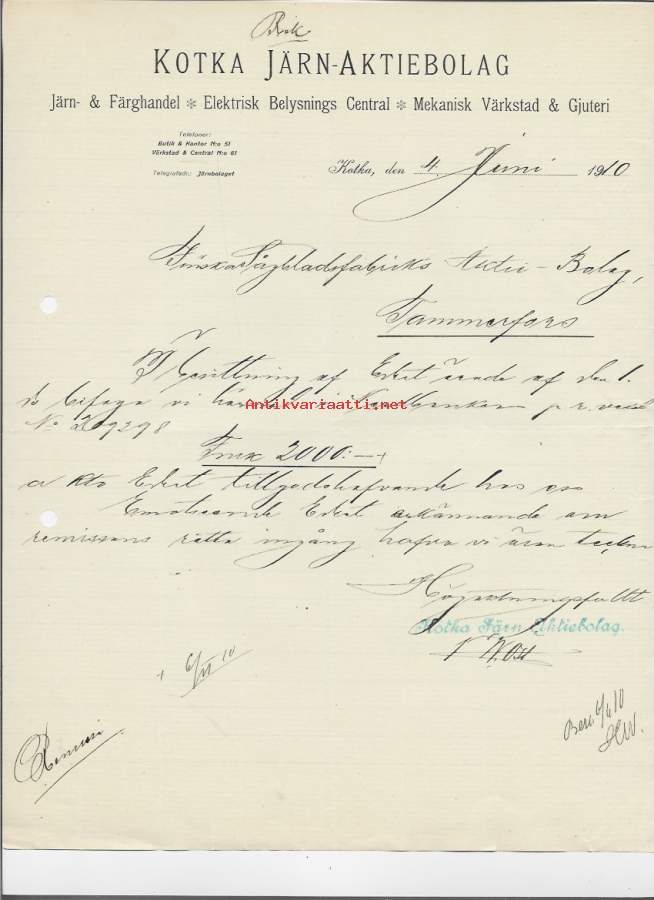 KOTKA JÄRN-AKTIEBOLAG
Järn- & Färghandel ✻ Elektrisk Belysnings Central ✻ Mekanisk Värkstad & Gjuteri
Telefoner:
Butik & Kontor N:o 51
Värkstad & Central N:o 61
Telegrafadr.: Järnbolaget
Kotka, den 4 Juni 1910
Finska Sågbladsfabriks Aktie-Bolag,
Tammerfors
I besittning af Edert ärade af den 1.
ds befoga vi
Antikvariaatti.net
No 209298
Fmk 2000:—
a kto Edert tillgodohafvande hos oss
Emotseende Edert erkännande om
remissens rätta ingång hafva vi äran teckna
Högaktningsfullt
Kotka Järn Aktiebolag.
6/VI 10
Besv. 6/6 10